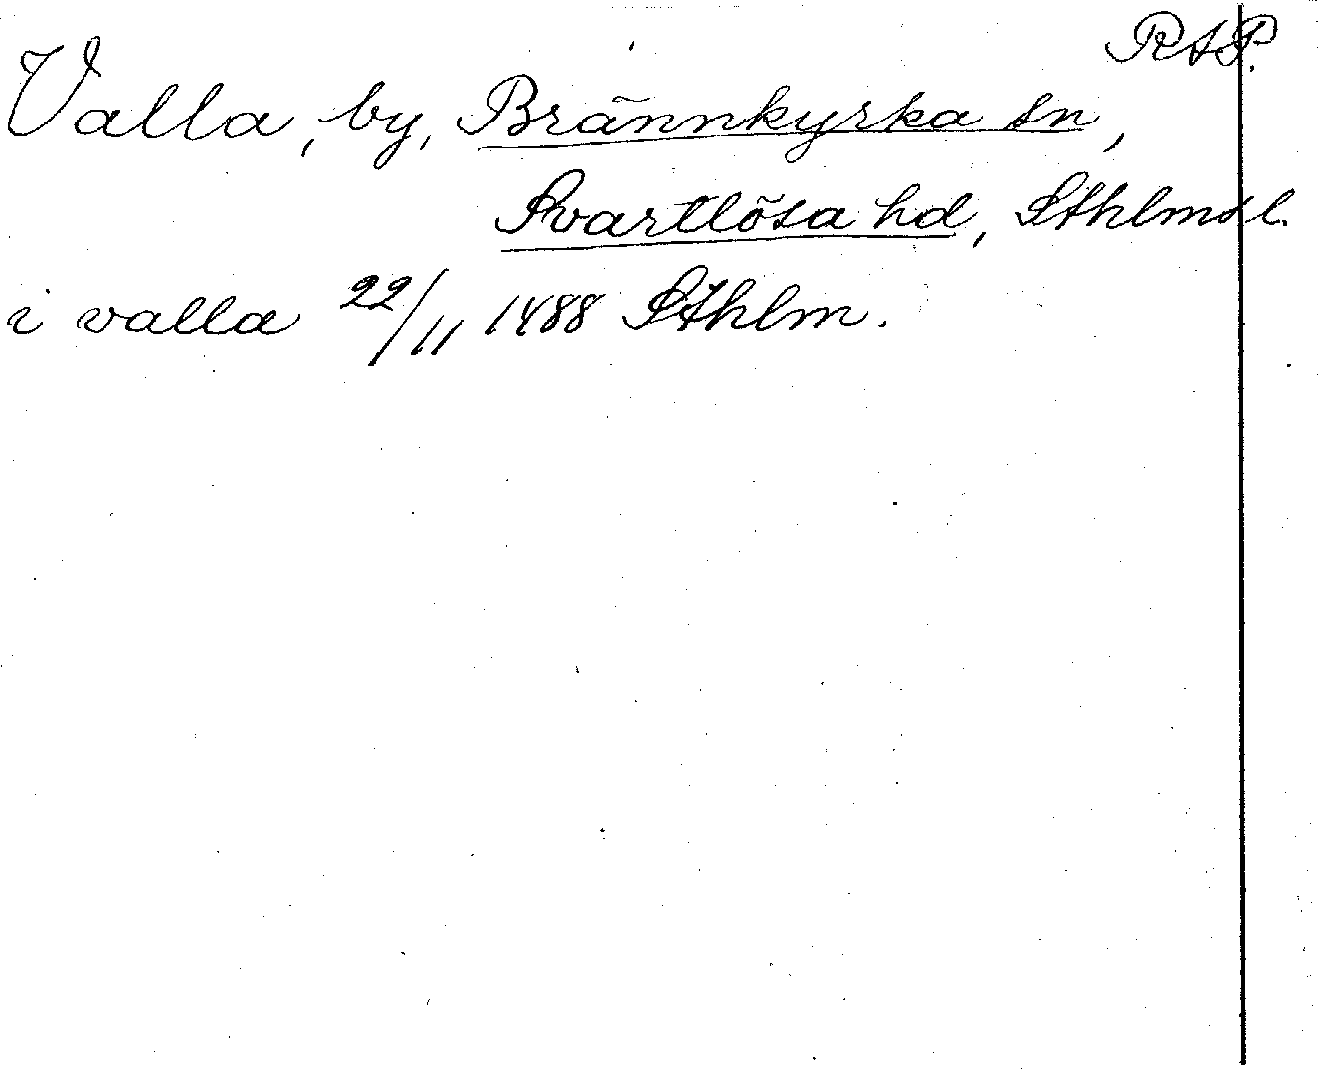 RAP.
Valla, by, Brännkyrka sn,
Svartlösa hd, Sthlms l.
i valla 22/11 1488 Sthlm.